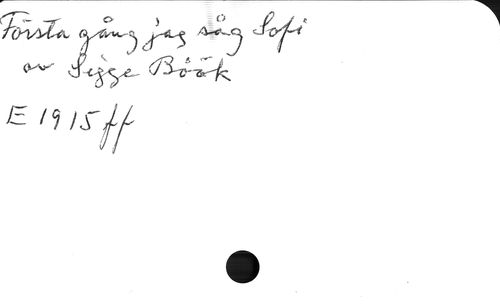 Första gång jag såg Sofi
av Sigge Böök
E 1915 ff